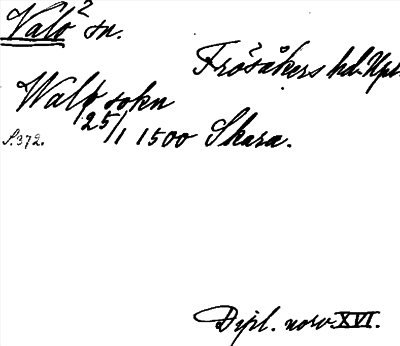 Valö² sn.
Frösåkers hd. Upl.
Walø sokn
25/1 1500 Skara.
S. 372.
Dipl. norv. XVI.